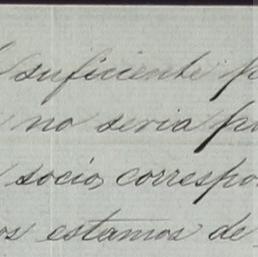 suficiente p
no seria p
socio, correspo
os estamos de